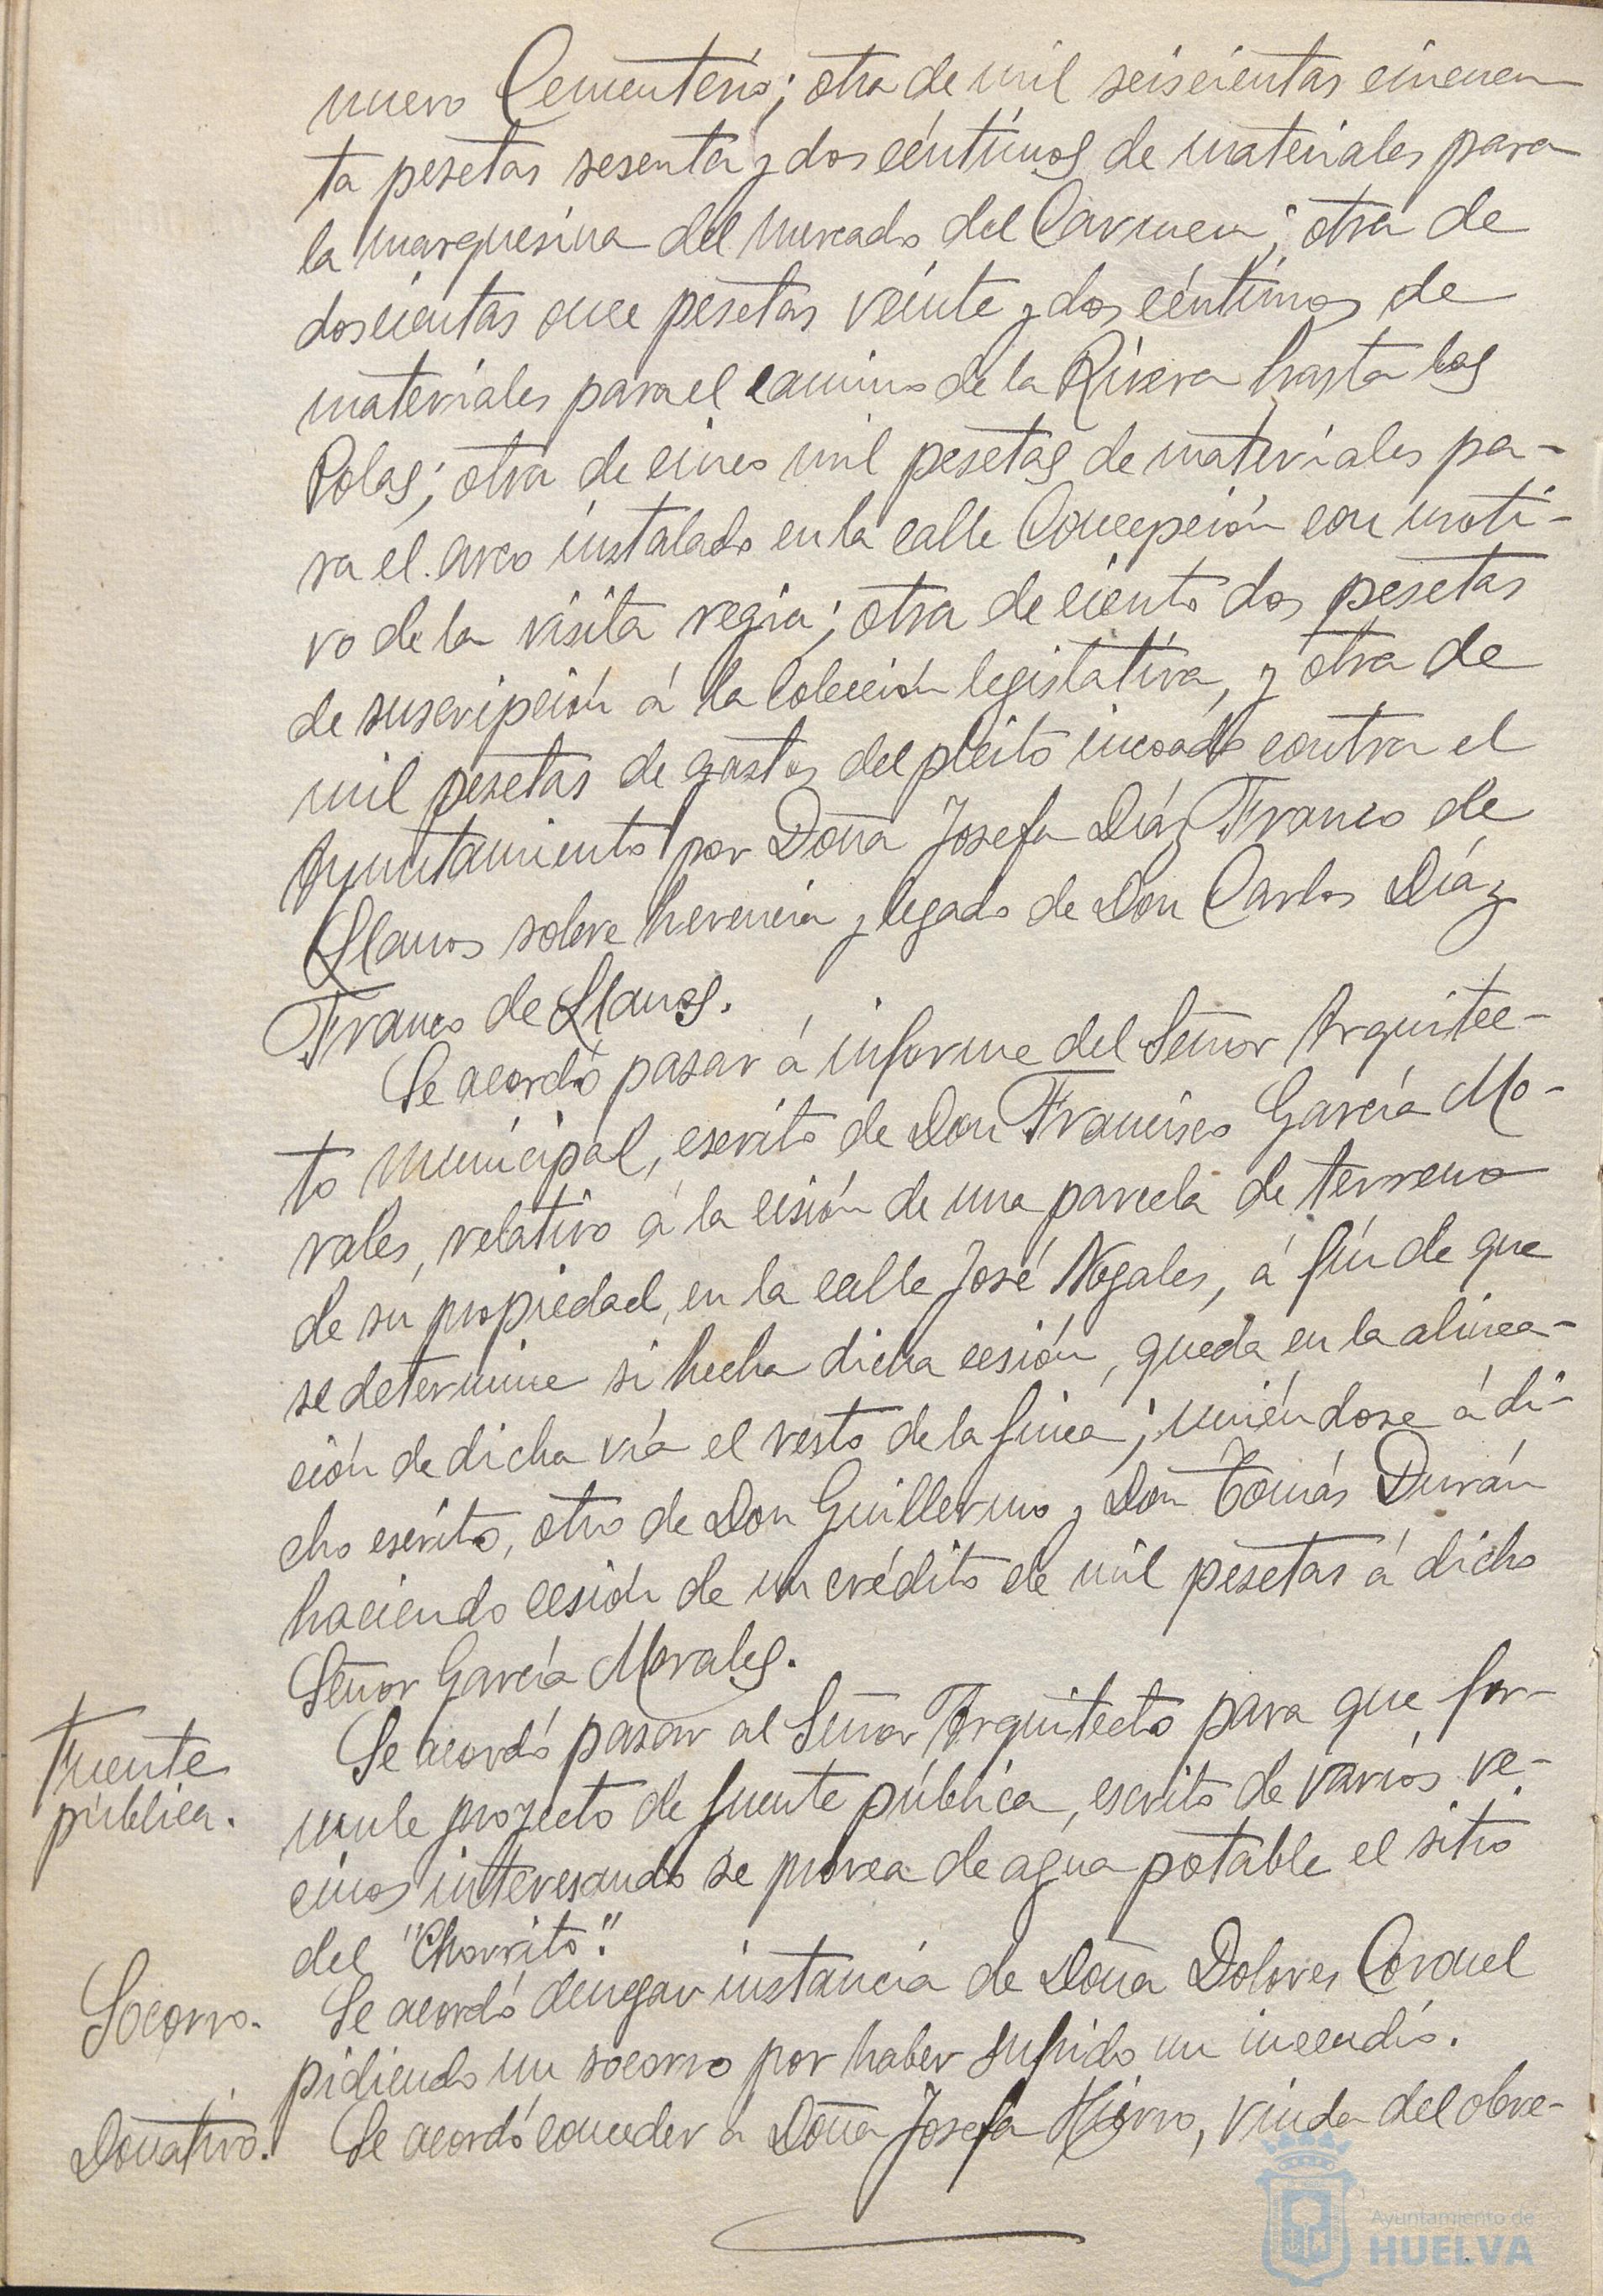 nuevo Cementerio; otra de mil seiscientas cincuen
ta pesetas sesenta y dos céntimos de materiales para
la marquesina del mercado del Carmen; otra de
doscientas once pesetas veinte y dos céntimos de
materiales para el camino de la Rivera hasta las
Polas; otra de cinco mil pesetas de materiales pa-
ra el arco instalado en la calle Concepción con moti-
vo de la visita regia; otra de ciento dos pesetas
de suscripción á la Colección legislativa, y otra de
mil pesetas de gastos del pleito incoado contra el
Ayuntamiento por Doña Josefa Díaz Franco de
Llanos sobre herencia y legado de Don Carlos Díaz
Franco de Llanos.
Se acordó pasar á informe del Señor Arquitec-
to municipal, escrito de Don Francisco García Mo-
rales, relativo á la cesión de una parcela de terreno
de su propiedad, en la calle José Nogales, á fín de que
se determine si hecha dicha cesión, queda en la alinea-
ción de dicha vía el resto de la finca; uniéndose á di-
cho escrito, otro de Don Guillermo y Don Tomás Durán
haciendo cesión de un crédito de mil pesetas á dicho
Señor García Morales.
Fuente
pública.
Se acordó pasar al Señor Arquitecto para que for-
mule proyecto de fuente pública, escrito de varios ve-
cinos interesando se provea de agua potable el sitio
del "Chorrito".
Socorro.
Se acordó denegar instancia de Doña Dolores Coronel
pidiendo un socorro por haber sufrido un incendio.
Donativo.
Se acordó conceder á Doña Josefa Hierro, viuda del obre-
Ayuntamiento de
HUELVA